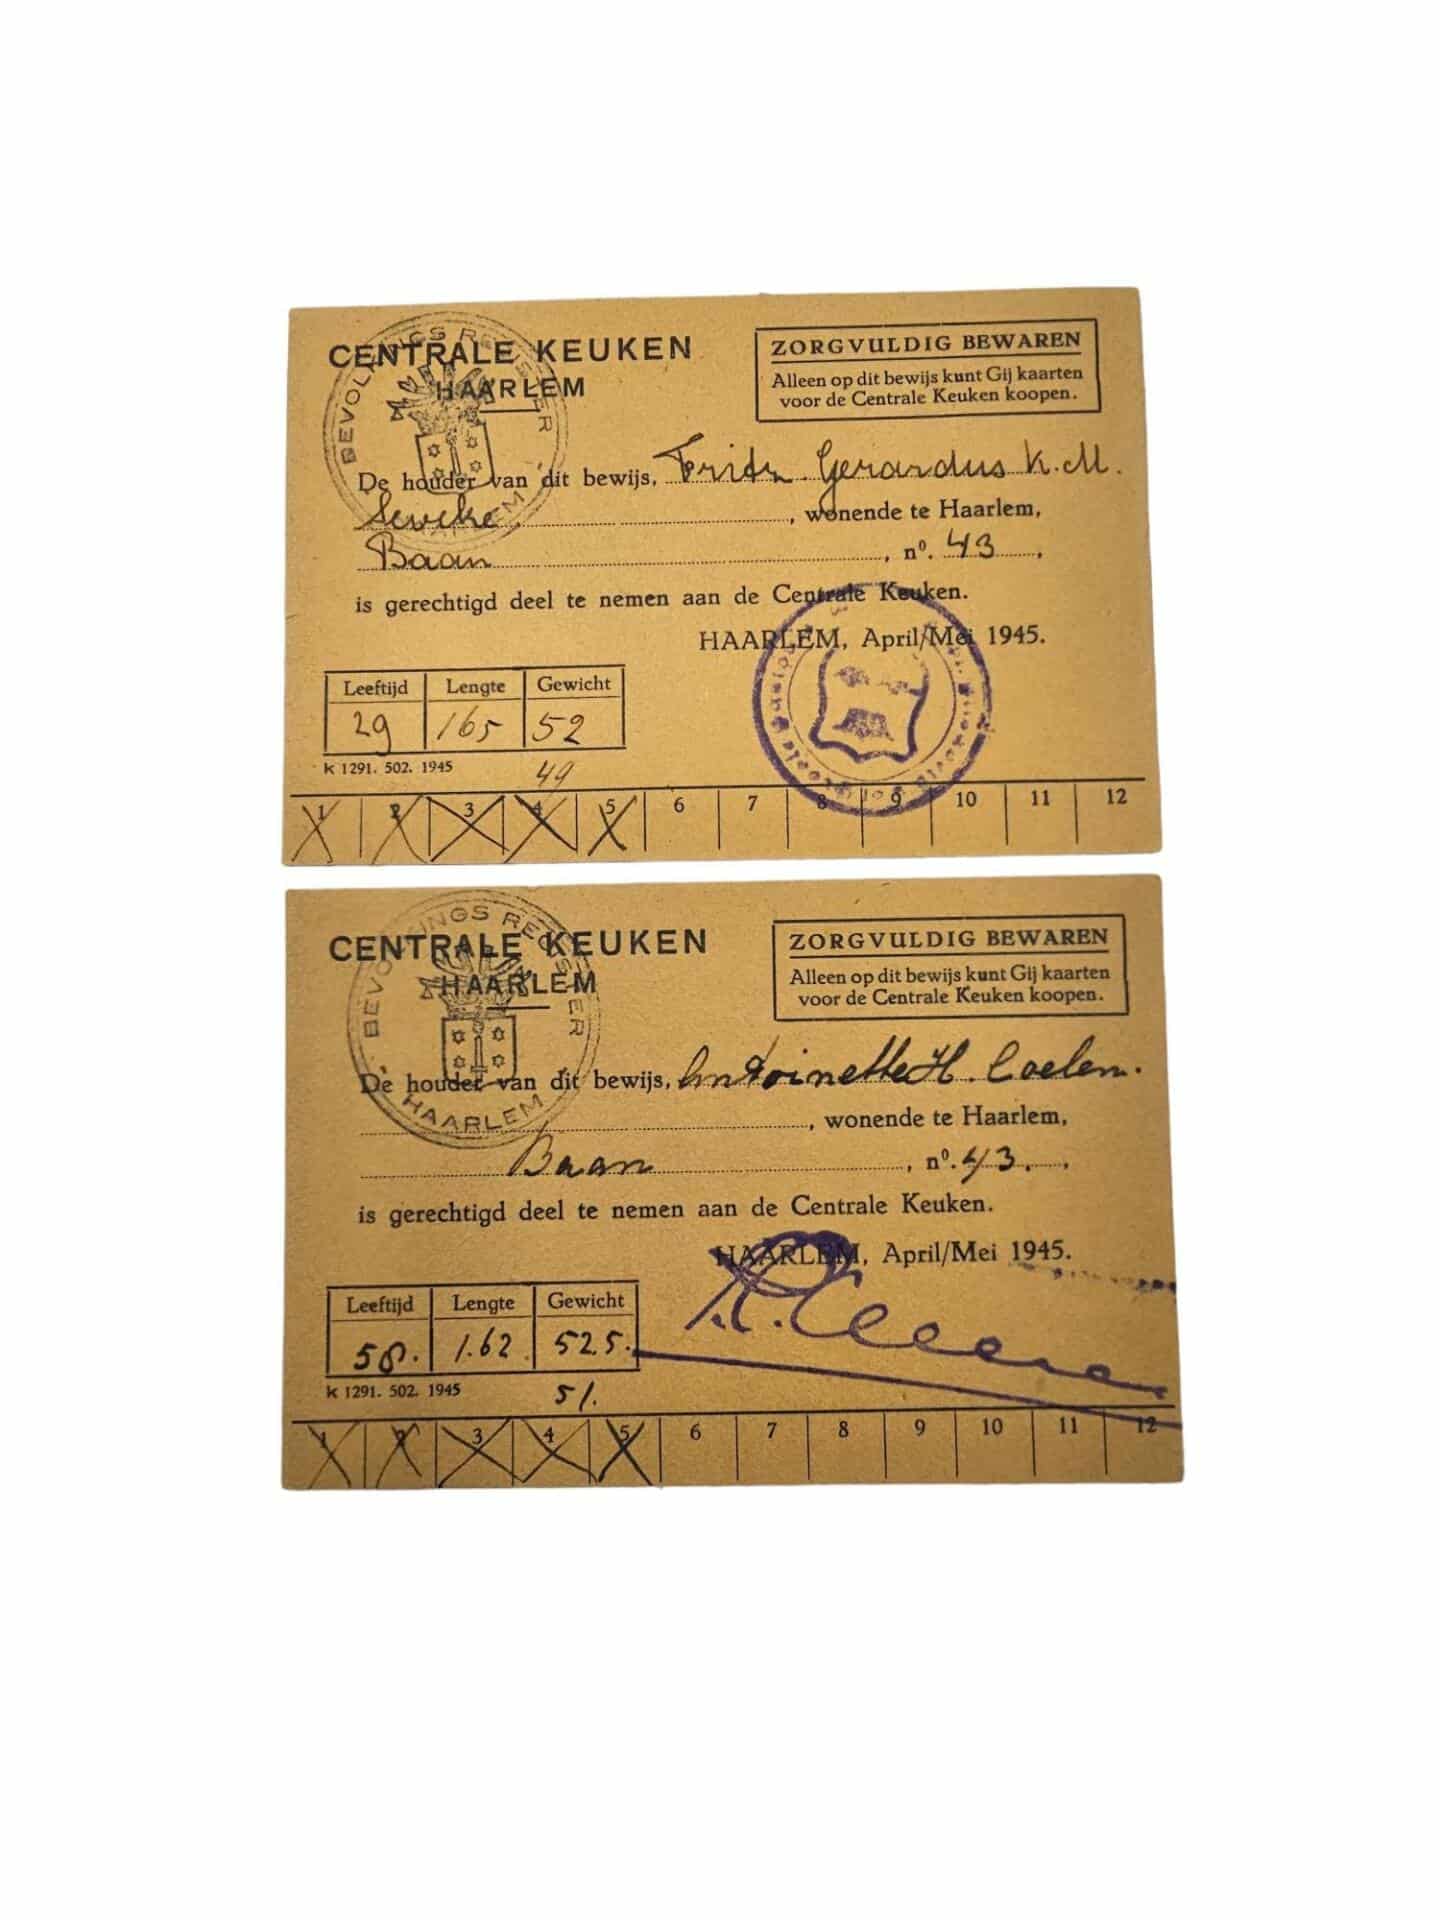 CENTRALE KEUKEN
HAARLEM
BEVOLKINGS REGISTER
HAARLEM
ZORGVULDIG BEWAREN
Alleen op dit bewijs kunt Gij kaarten
voor de Centrale Keuken koopen.
De houder van dit bewijs, Frits Gerardus K. M.
Seweke, wonende te Haarlem,
Baan, nº. 43,
is gerechtigd deel te nemen aan de Centrale Keuken.
HAARLEM, April/Mei 1945.
Leeftijd Lengte Gewicht
29 165 52
K 1291. 502. 1945 49
1 2 3 4 5 6 7 8 9 10 11 12
CENTRALE KEUKEN
HAARLEM
BEVOLKINGS REGISTER
HAARLEM
ZORGVULDIG BEWAREN
Alleen op dit bewijs kunt Gij kaarten
voor de Centrale Keuken koopen.
De houder van dit bewijs, Antoinette H. Coelen.
, wonende te Haarlem,
Baan, nº. 43.,
is gerechtigd deel te nemen aan de Centrale Keuken.
HAARLEM, April/Mei 1945.
Leeftijd Lengte Gewicht
58. 1.62 52.5.
K 1291. 502. 1945 51.
1 2 3 4 5 6 7 8 9 10 11 12